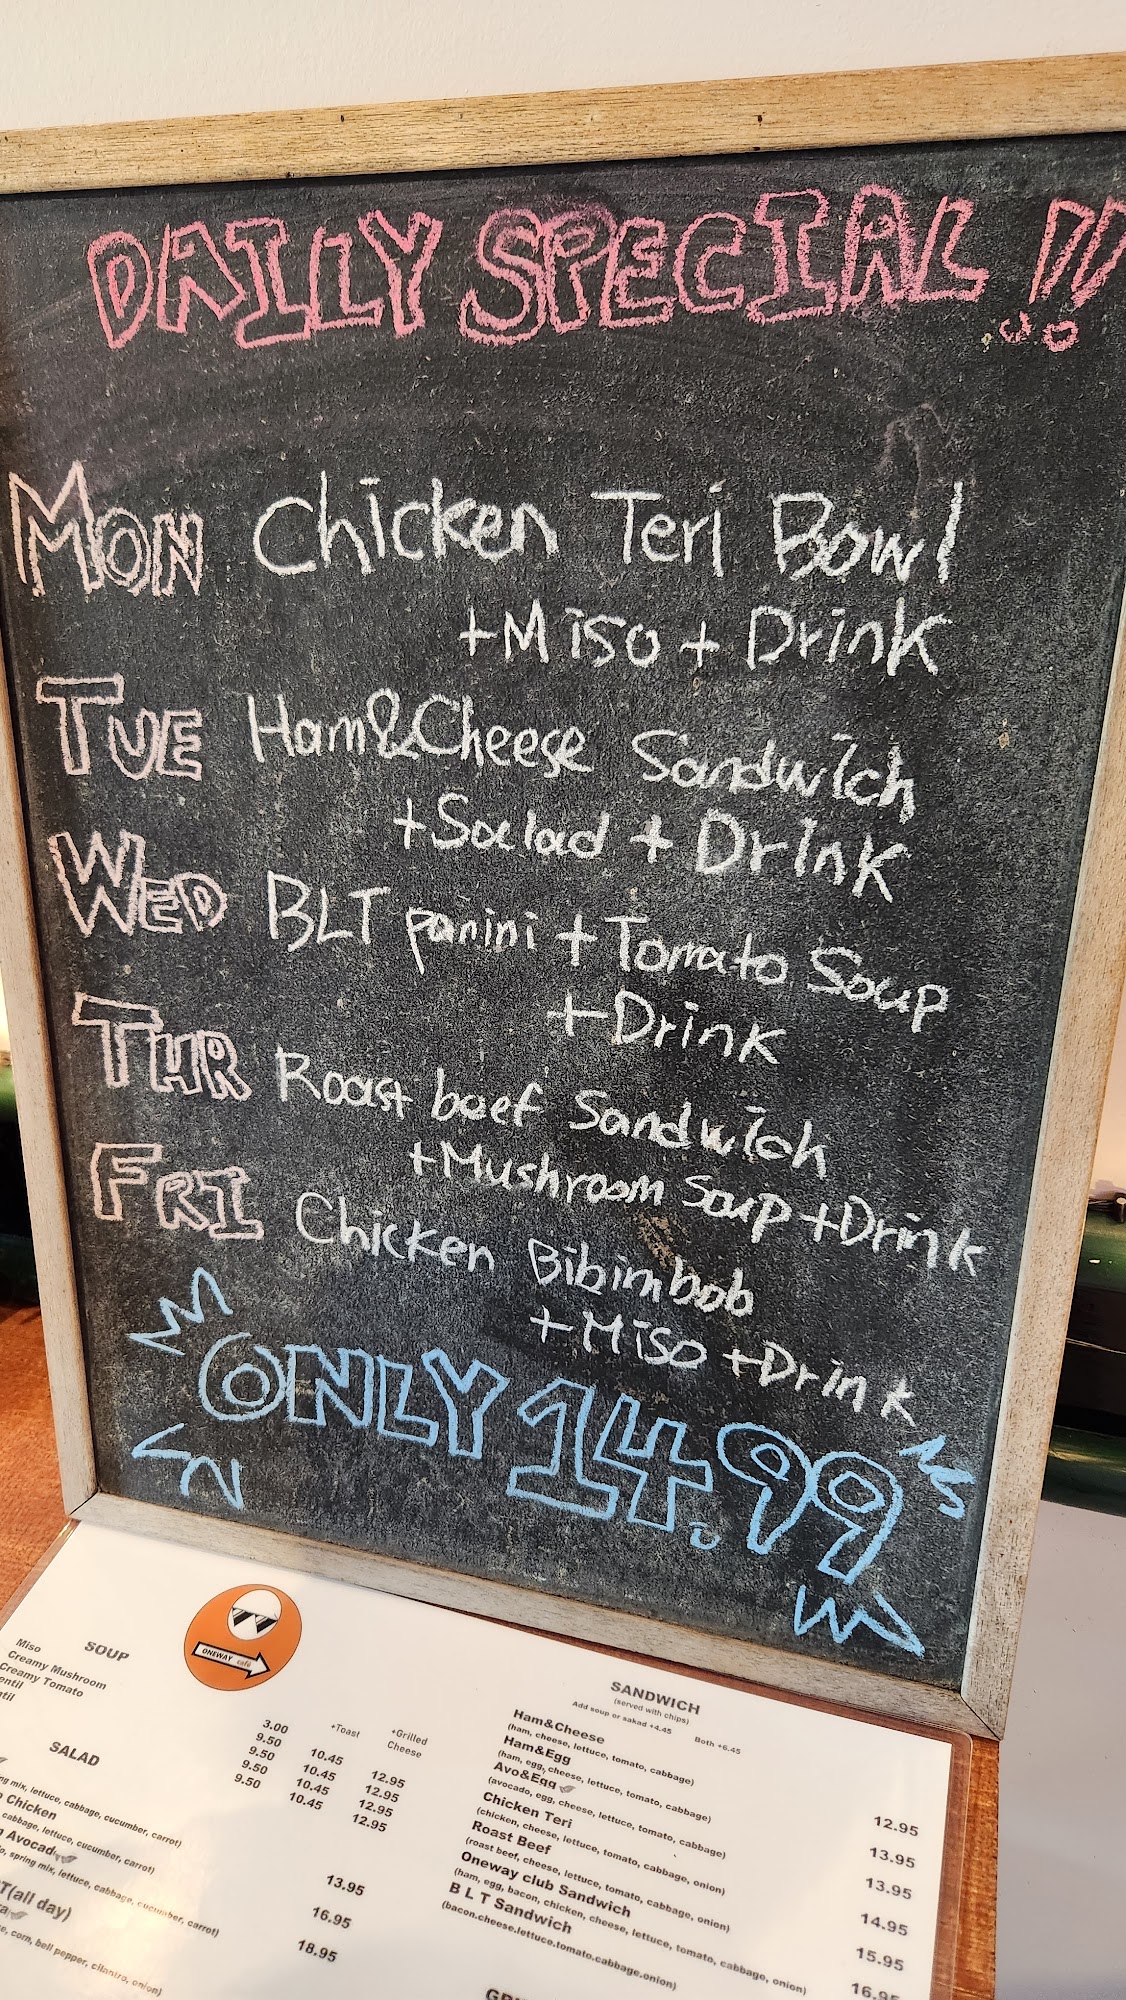 DAILY SPECIAL !!
MON Chicken Teri Bowl
+Miso + Drink
TUE Ham&Cheese Sandwich
+Salad + Drink
WED BLT panini + Tomato Soup
+Drink
THR Roast beef Sandwich
+Mushroom Soup +Drink
FRI Chicken Bibimbob
+Miso +Drink
ONLY 14.99
ONEWAY café
SOUP
Miso 3.00
Creamy Mushroom 9.50
Creamy Tomato 9.50
9.50
9.50
+Toast
10.45
10.45
10.45
10.45
+Grilled
Cheese
12.95
12.95
12.95
12.95
SALAD
mix, lettuce, cabbage, cucumber, carrot)
13.95
Chicken
cabbage, lettuce, cucumber, carrot)
16.95
Avocado
spring mix, lettuce, cabbage, cucumber, carrot)
18.95
(all day)
corn, bell pepper, cilantro, onion)
SANDWICH
(served with chips)
Add soup or sakad +4.45 Both +6.45
Ham&Cheese 12.95
(ham, cheese, lettuce, tomato, cabbage)
Ham&Egg 13.95
(ham, egg, cheese, lettuce, tomato, cabbage)
Avo&Egg 13.95
(avocado, egg, cheese, lettuce, tomato, cabbage)
Chicken Teri 14.95
(chicken, cheese, lettuce, tomato, cabbage, onion)
Roast Beef 15.95
(roast beef, cheese, lettuce, tomato, cabbage, onion)
Oneway club Sandwich 16.95
(ham, egg, bacon, chicken, cheese, lettuce, tomato, cabbage, onion)
B L T Sandwich
(bacon.cheese.lettuce.tomato.cabbage.onion)